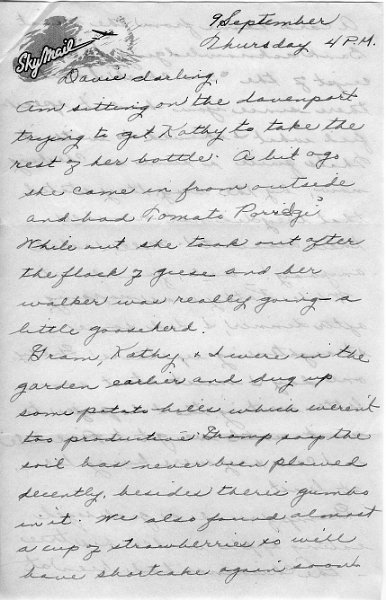 Sky Mail
9 September
Thursday 4 P.M.
Davie darling,
Am sitting on the davenport
trying to get Kathy to take the
rest of her bottle. A bit ago
she came in from outside
and had "Tomato Porridge"
While out she took out after
the flock of geese and her
walker was really going - a
little gooseherd.
Gram, Kathy, & I were in the
garden earlier and dug up
some potato hills which weren't
too productive Gramp say the
soil has never been plowed
decently, besides there's gumbo
in it. We also found almost
a cup of strawberries so will
have shortcake again soon.